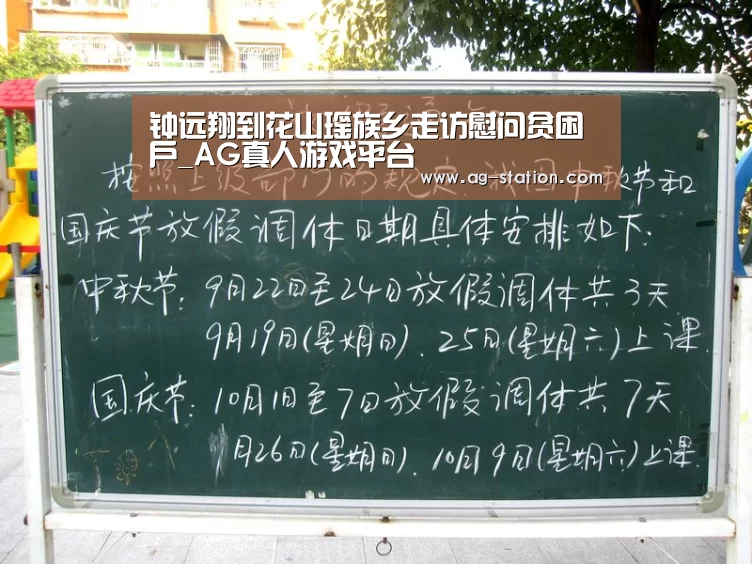 钟远翔到花山瑶族乡走访慰问贫困
户_AG真人游戏平台
www.ag-station.com
按照上级部门的规定,我园中秋节和
国庆节放假调休日期具体安排如下:
中秋节:9月22日至24日放假调休共3天
9月19日(星期日)、25日(星期六)上课.
国庆节:10月1日至7日放假调休共7天
月26日(星期日)、10月9日(星期六)上课.